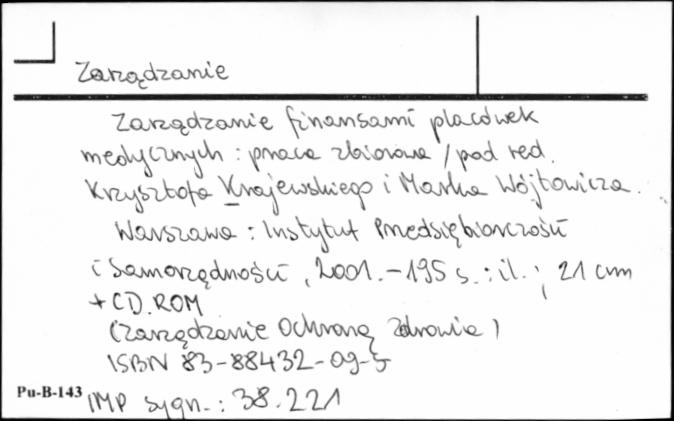 Zarządzanie
Zarządzanie finansami placówek
medycznych : praca zbiorowa / pod red.
Krzysztofa Krajewskiego i Marka Wójtowicza.
Warszawa : Instytut Przedsiębiorczości
i Samorządności, 2001. - 195 s. : il. ; 21 cm
+ CD.ROM
(Zarządzanie Ochroną Zdrowia)
ISBN 83-88432-09-5
Pu-B-143
IMP sygn. : 38.221